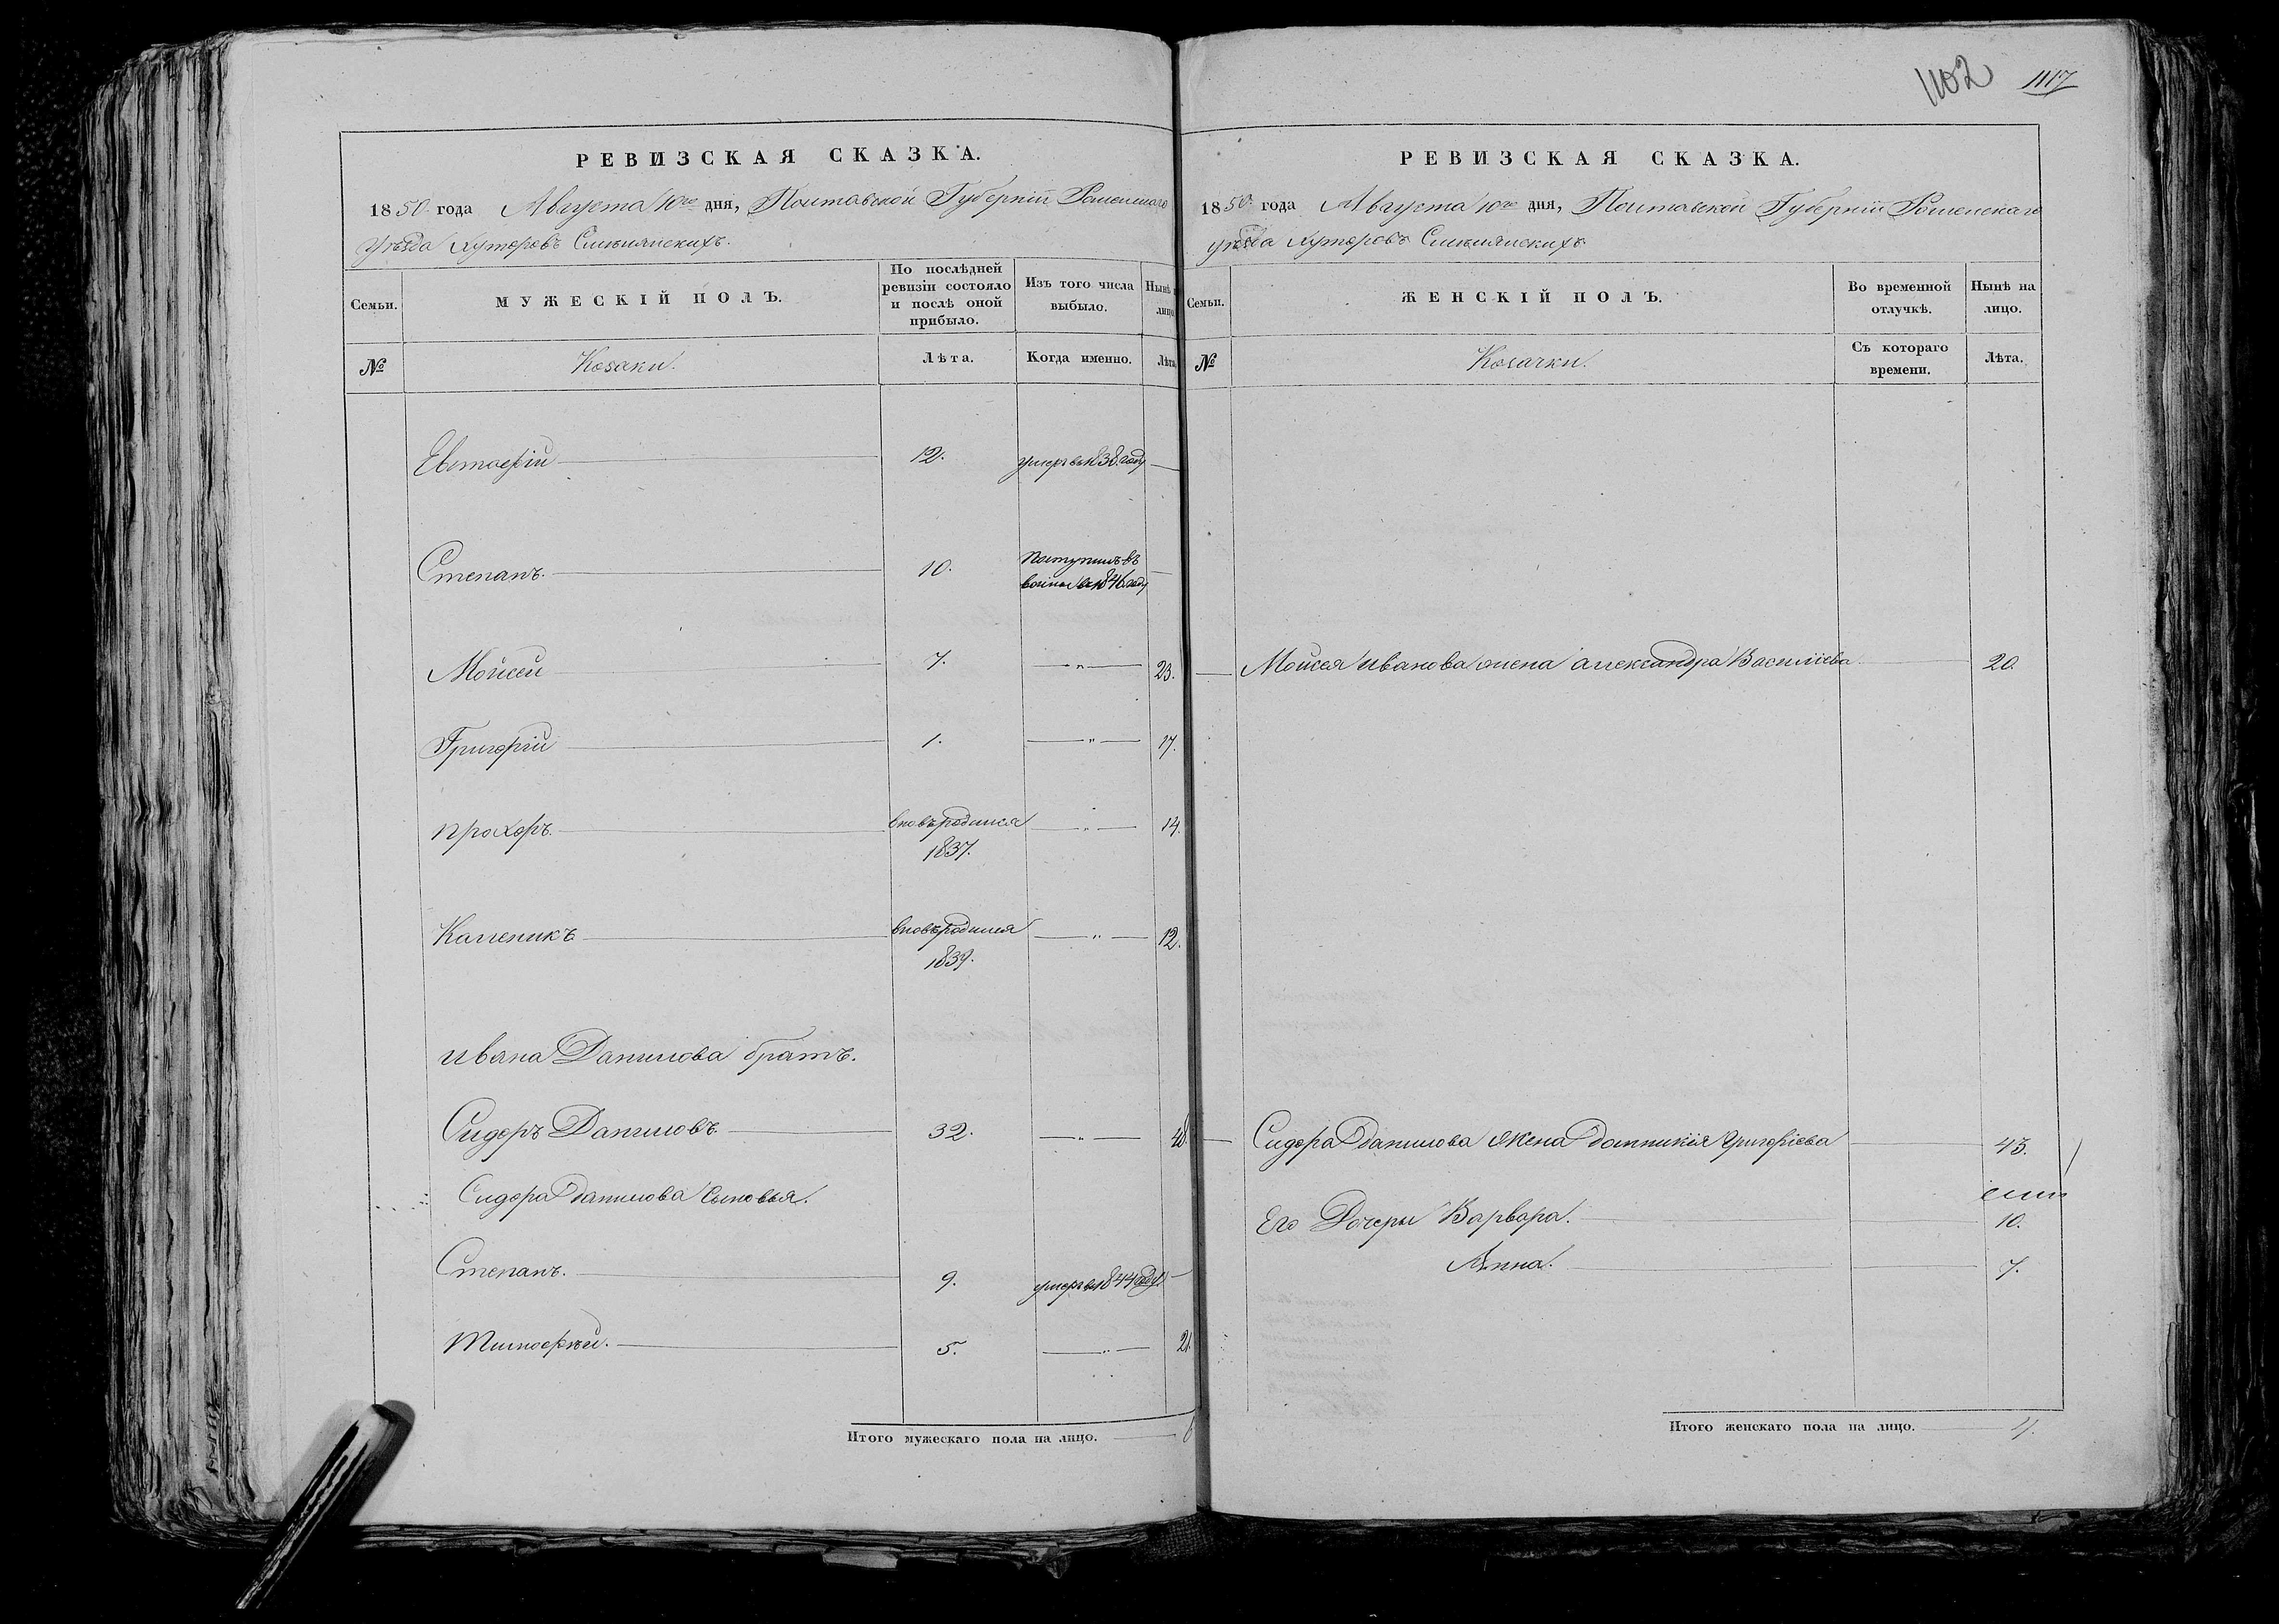 1102 1117
РЕВИЗСКАЯ СКАЗКА.
1850 года Августа 10го дня, Полтавской Губерніи Роменскаго
Уѣзда Хуторовъ
Семьи.
МУЖЕСКІЙ ПОЛЪ.
По послѣдней ревизіи состояло и послѣ оной прибыло.
Изъ того числа выбыло.
Нынѣ на лицо.
№ Козаки. Лѣта. Когда именно. Лѣта
Евстафій 12. умеръ въ 1838 году
Степанъ. 10. Поступилъ въ
въ 1846 году
Мойсей 7. " 23.
Григорій 1. " 17.
Прохоръ. вновь родился " 14.
1837.
Каленикъ вновь родился " 12.
1839.
Ивана Данилова братъ.
Сидоръ Даниловъ. 32. " 48.
Сидора Данилова Сыновья.
Степанъ. 9. умеръ въ 1844 году
Тимофѣй. 5. " 21.
Итого мужескаго пола на лицо. 6
РЕВИЗСКАЯ СКАЗКА.
1850 года Августа 10го дня, Полтавской Губерніи Роменскаго
уѣзда Хуторовъ
Семьи.
ЖЕНСКІЙ ПОЛЪ.
Во временной отлучкѣ.
Нынѣ на лицо.
№ Козачки. Съ котораго времени. Лѣта.
Мойсея Иванова жена Александра Василіева 20.
Сидора Данилова жена Домникія Григоріева 43.
Его Дочери Варвара. 10.
Анна. 7.
Итого женскаго пола на лицо. 4.